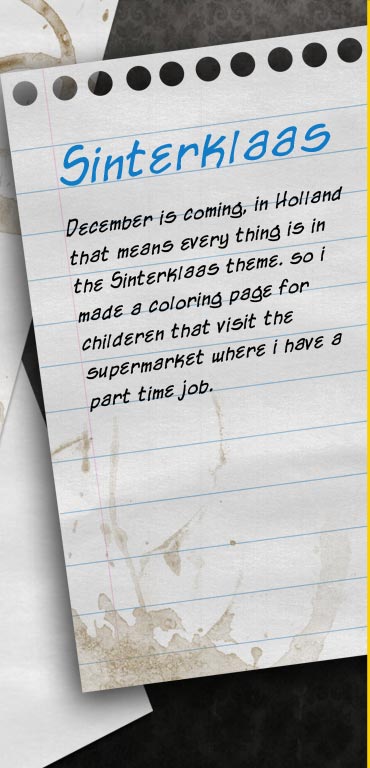 Sinterklaas
December is coming, in Holland
that means every thing is in
the Sinterklaas theme. so i
made a coloring page for
childeren that visit the
supermarket where i have a
part time job.